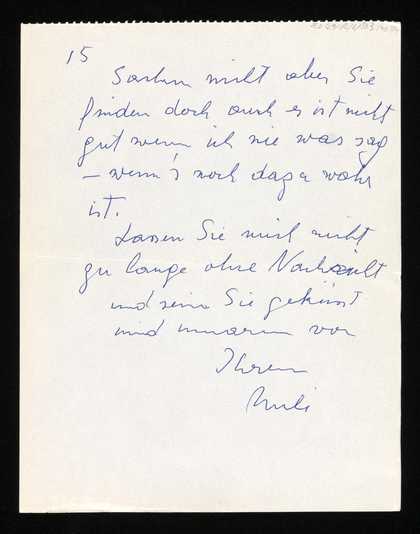 15
Sachen nicht aber Sie
finden doch auch es ist nicht
gut wenn ich nie was sag
– wenn's noch dazu wahr
ist.
Lassen Sie mich nicht
zu lange ohne Nachricht
und seien Sie geküsst
und umarmt von
Ihrem